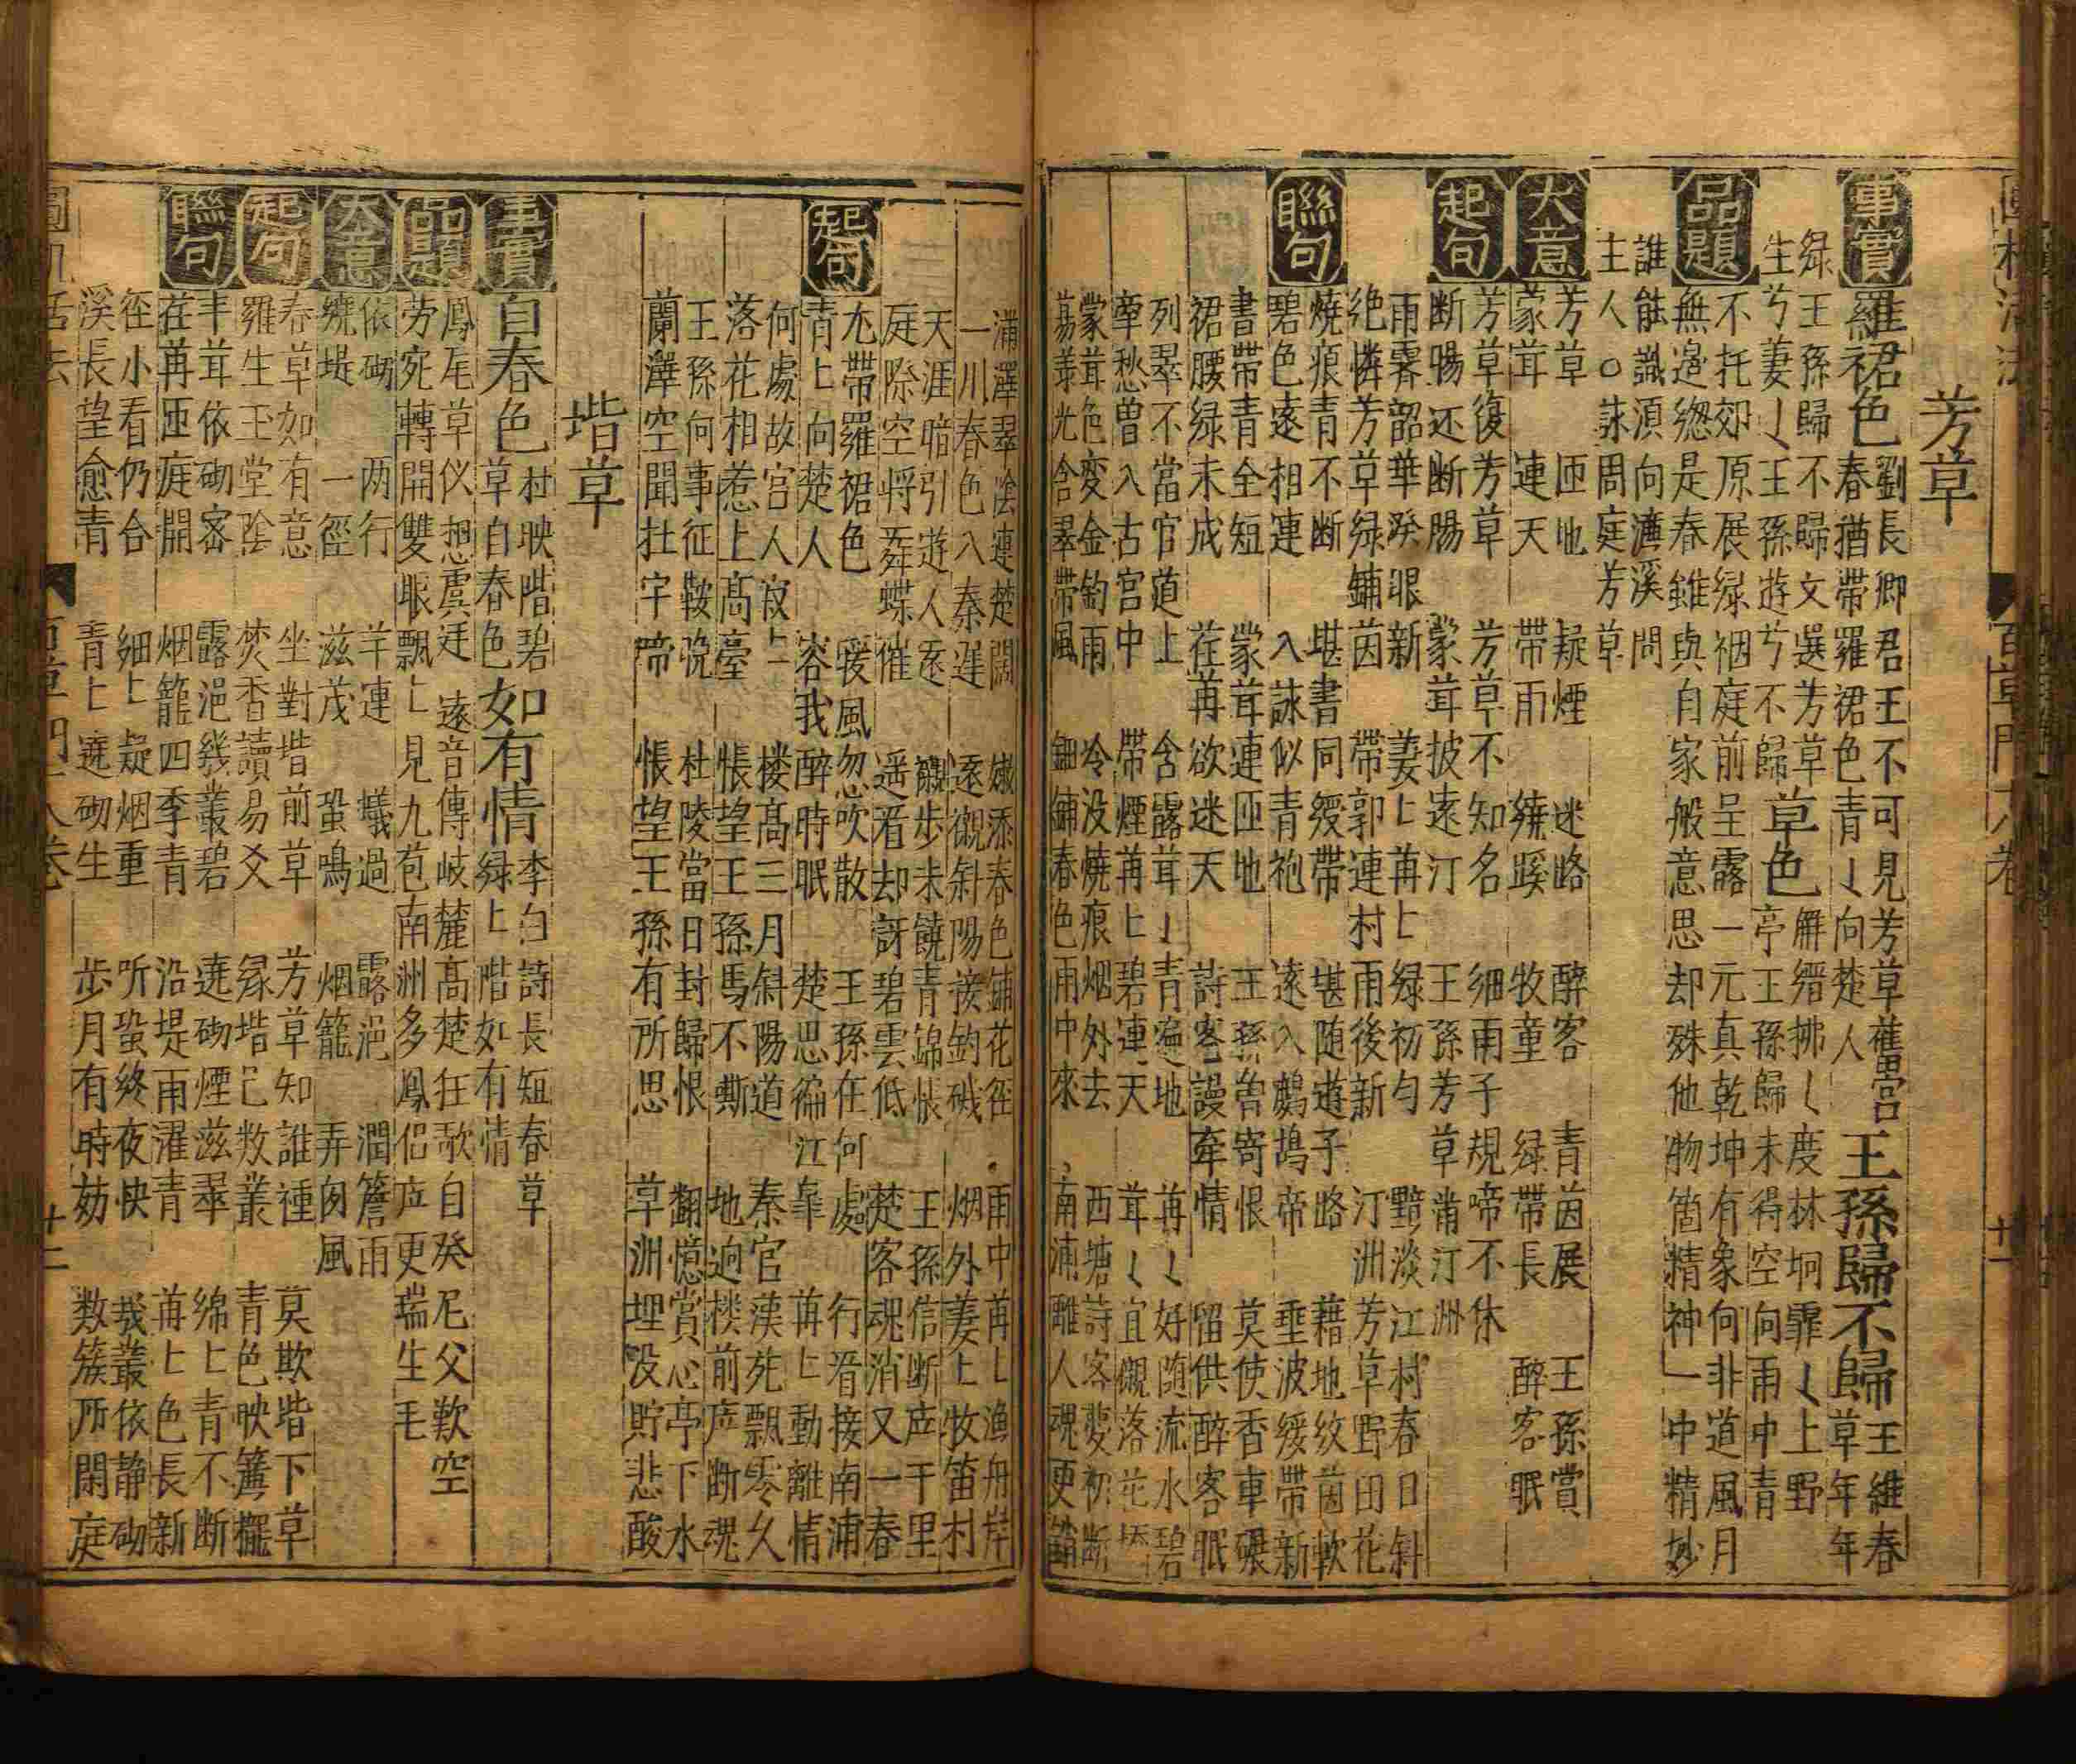 芳草
事實
羅裙色
劉長卿君王不可見芳草舊宮
春猶帶羅裙色青〻向楚人
王孫歸不歸
王維春
草年年
綠王孫歸不歸文選芳草
生兮萋〻王孫遊兮不歸
草色
亭王孫歸未得空向雨中青
品題
不托郊原展綠裀庭前呈露一元真乾坤有象何非道風月
無邊緫是春雖與自家般意思却殊他物箇精神一中精妙
誰能識湏向濂溪問
主人〇詠周庭芳草
大意
芳草 匝地 疑煙 迷路 醉客 青茵展 王孫賞
蒙茸 連天 帶雨 牧童 綠帶長 醉客眠
起句
芳草復芳草 芳草不知名 細雨子規啼不休
断腸还断腸 蒙茸披遠汀 王孫芳草滿汀洲
雨霽韶華眼新 萋〻苒〻綠初勻 黯淡江村春日斜
絶憐芳草綠鋪茵 帶郭連村雨後新 汀洲芳草野田花
聯句
燒痕青不断 堪書同綬帶 堪随遊子路 藉地紋茵軟
碧色遠相連 入詠似青袍 遂入鷓鴣啼 垂波綬帶新
書帶青全短 蒙茸連匝地 王孫曽寄恨 莫使香車碾
裙腰綠未成 荏苒欲迷天 詩客謾牽情 留供醉客眠
列翠不當官道上 含露茸〻青遍地 苒〻好随流水碧
牽愁曽入古宮中 帶煙苒〻碧連天 茸〻宜襯落花
蒙茸色変金鈞雨 冷没燒痕烟外去 西塘詩客夢初断
光含翠帶風 細鋪春色雨中來 南浦離人魂更銷
浦澤翠陰連楚闊 嫩添春色鋪花徑 雨中苒〻漁舟岸
一川春色入秦遲 逐襯斜陽接釣磯 烟外萋〻牧笛村
天涯暗引遊人逐 襯步未饒青錦帳 王孫信断千里
庭除空將舞蝶催 遥看却訝碧雲低 楚客魂消又一春
起句
尤帶羅裙色 暖風忽吹散 王孫在何處 行看接南浦
青〻向楚人 容我醉時眠 楚思徧江皐 苒〻動離情
何處故宮人寂〻 楼高三月斜陽道 秦官漢苑飄零久
落花相惹上高臺 悵望王孫馬不嘶 地逈楼前断魂
王孫何事征鞍晚 杜陵當日封歸恨 翻憶賞心亭下水
蘭澤空聞杜宇啼 悵望王孫有所思 草洲埋没貯悲酸
堦草
事實
自春色
杜映階碧
草自春色
如有情
李白詩長短春草
綠〻階如有情
品題
鳳尾草仪想虞廷遠音傳岐麓高楚狂歌自癸尼父歎空
劳宛轉開雙眼飄〻見九苞南洲多鳳侣更瑞生毛
大意
依砌 两行 羊連 蟻過 露浥 潤簷雨
繞堤 一徑 滋茂 蛩鳴 烟籠 弄囱風
起句
春草如有意 坐對堦前草 芳草知誰種 莫欺堦下草
羅生玉堂陰 焚香讀易爻 緣堦已敷叢 青色映簾櫳
聯句
丰茸依砌密 露浥幾叢碧 遶砌煙滋翠 绵〻青不断
荏苒匝庭開 烟籠四季青 沿堤雨濯青 苒〻色長新
徑小看仍合 細〻疑烟重 听蛩終夜快 幾叢依静砌
溪長望愈青 青〻遶砌生 步月有時妨 数簇閑庭